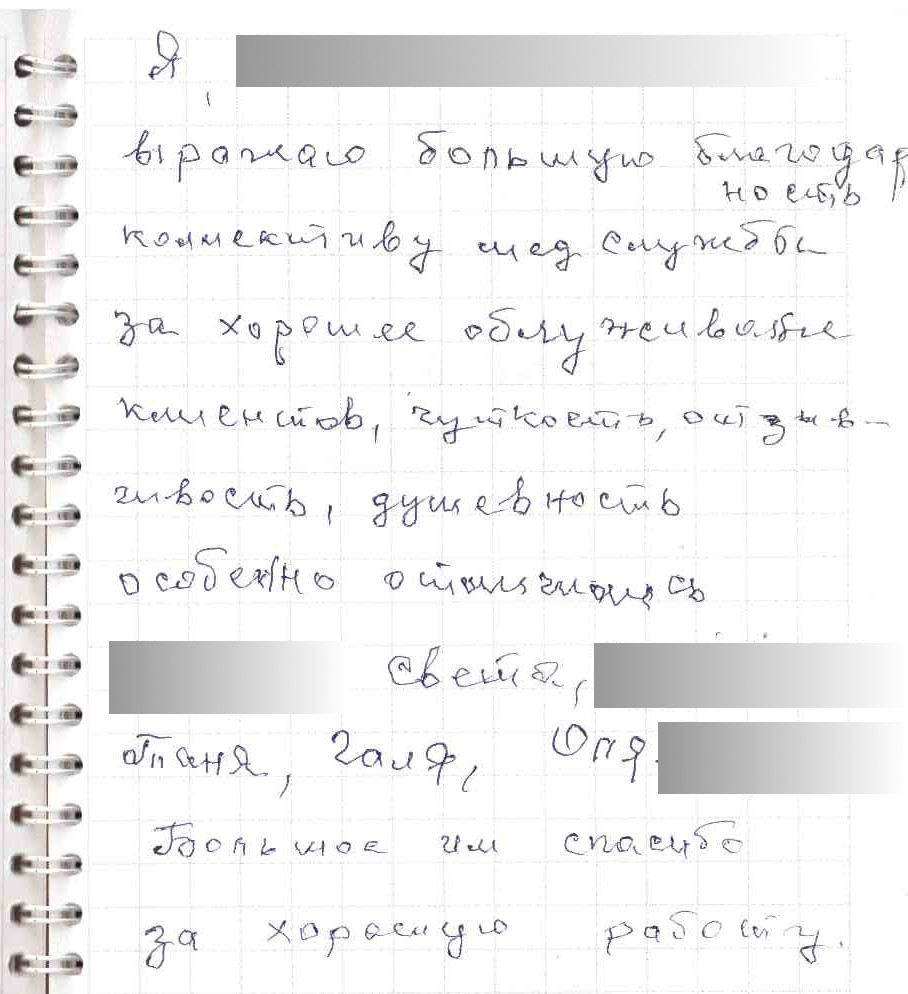 Я
выражаю большую благодар
ность
коллективу мед службы
за хорошее обслуживание
клиентов, чуткость, отзыв-
чивость, душевность
особенно отличились
Света,
Таня, Галя, Оля.
Большое им спасибо
за хорошую работу.